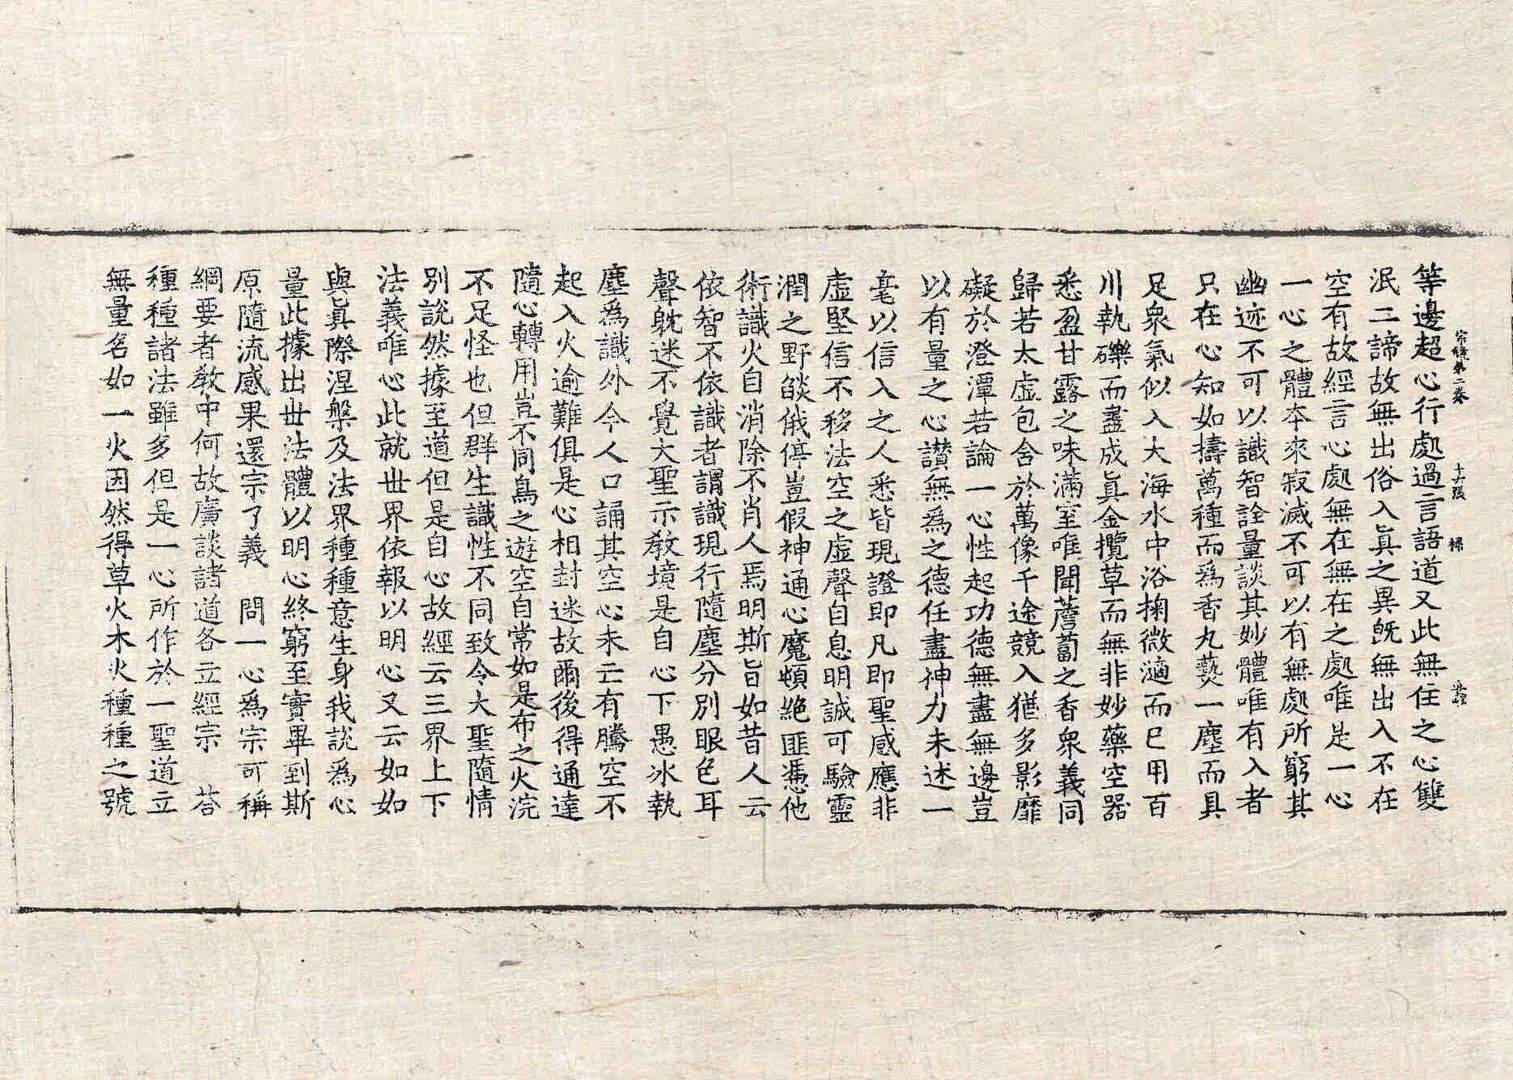 等邊超心行處過言語道又此無住之心雙
宗鏡第二卷 十六張
泯二諦故無出俗入眞之異旣無出入不在
空有故經言心處無在無在之處唯是一心
一心之體本來寂滅不可以有無處所窮其
幽迹不可以識智詮量談其妙體唯有入者
只在心知如擣萬種而爲香丸爇一塵而具
足衆氣似入大海水中浴掬微滴而已用百
川執礫而盡成眞金攬草而無非妙藥空器
悉盈甘露之味滿室唯聞薝蔔之香衆義同
歸若太虛包含於萬像千途競入猶多影靡
礙於澄潭若論一心性起功德無盡無邊豈
以有量之心讃無爲之德任盡神力未述一
毫以信入之人悉皆現證即凡即聖感應非
虛堅信不移法空之虛聲自息明誠可驗靈
潤之野燄俄停豈假神通心魔頓絕匪憑他
術識火自消除不肖人焉明斯旨如昔人云
依智不依識者謂識現行隨塵分別眼色耳
聲躭迷不覺大聖示敎境是自心下愚氷執
塵爲識外今人口誦其空心未亡有騰空不
起入火逾難俱是心相封迷故爾後得通達
隨心轉用豈不同鳥之遊空自常如是布之火浣
不足怪也但群生識性不同致令大聖隨情
別說然據至道但是自心故經云三界上下
法義唯心此就世界依報以明心又云如如
與眞際涅槃及法界種種意生身我說爲心
量此據出世法體以明心終窮至實畢到斯
原隨流感果還宗了義 問一心爲宗可稱
綱要者敎中何故廣談諸道各立經宗 荅
種種諸法雖多但是一心所作於一聖道立
無量名如一火因然得草火木火種種之號